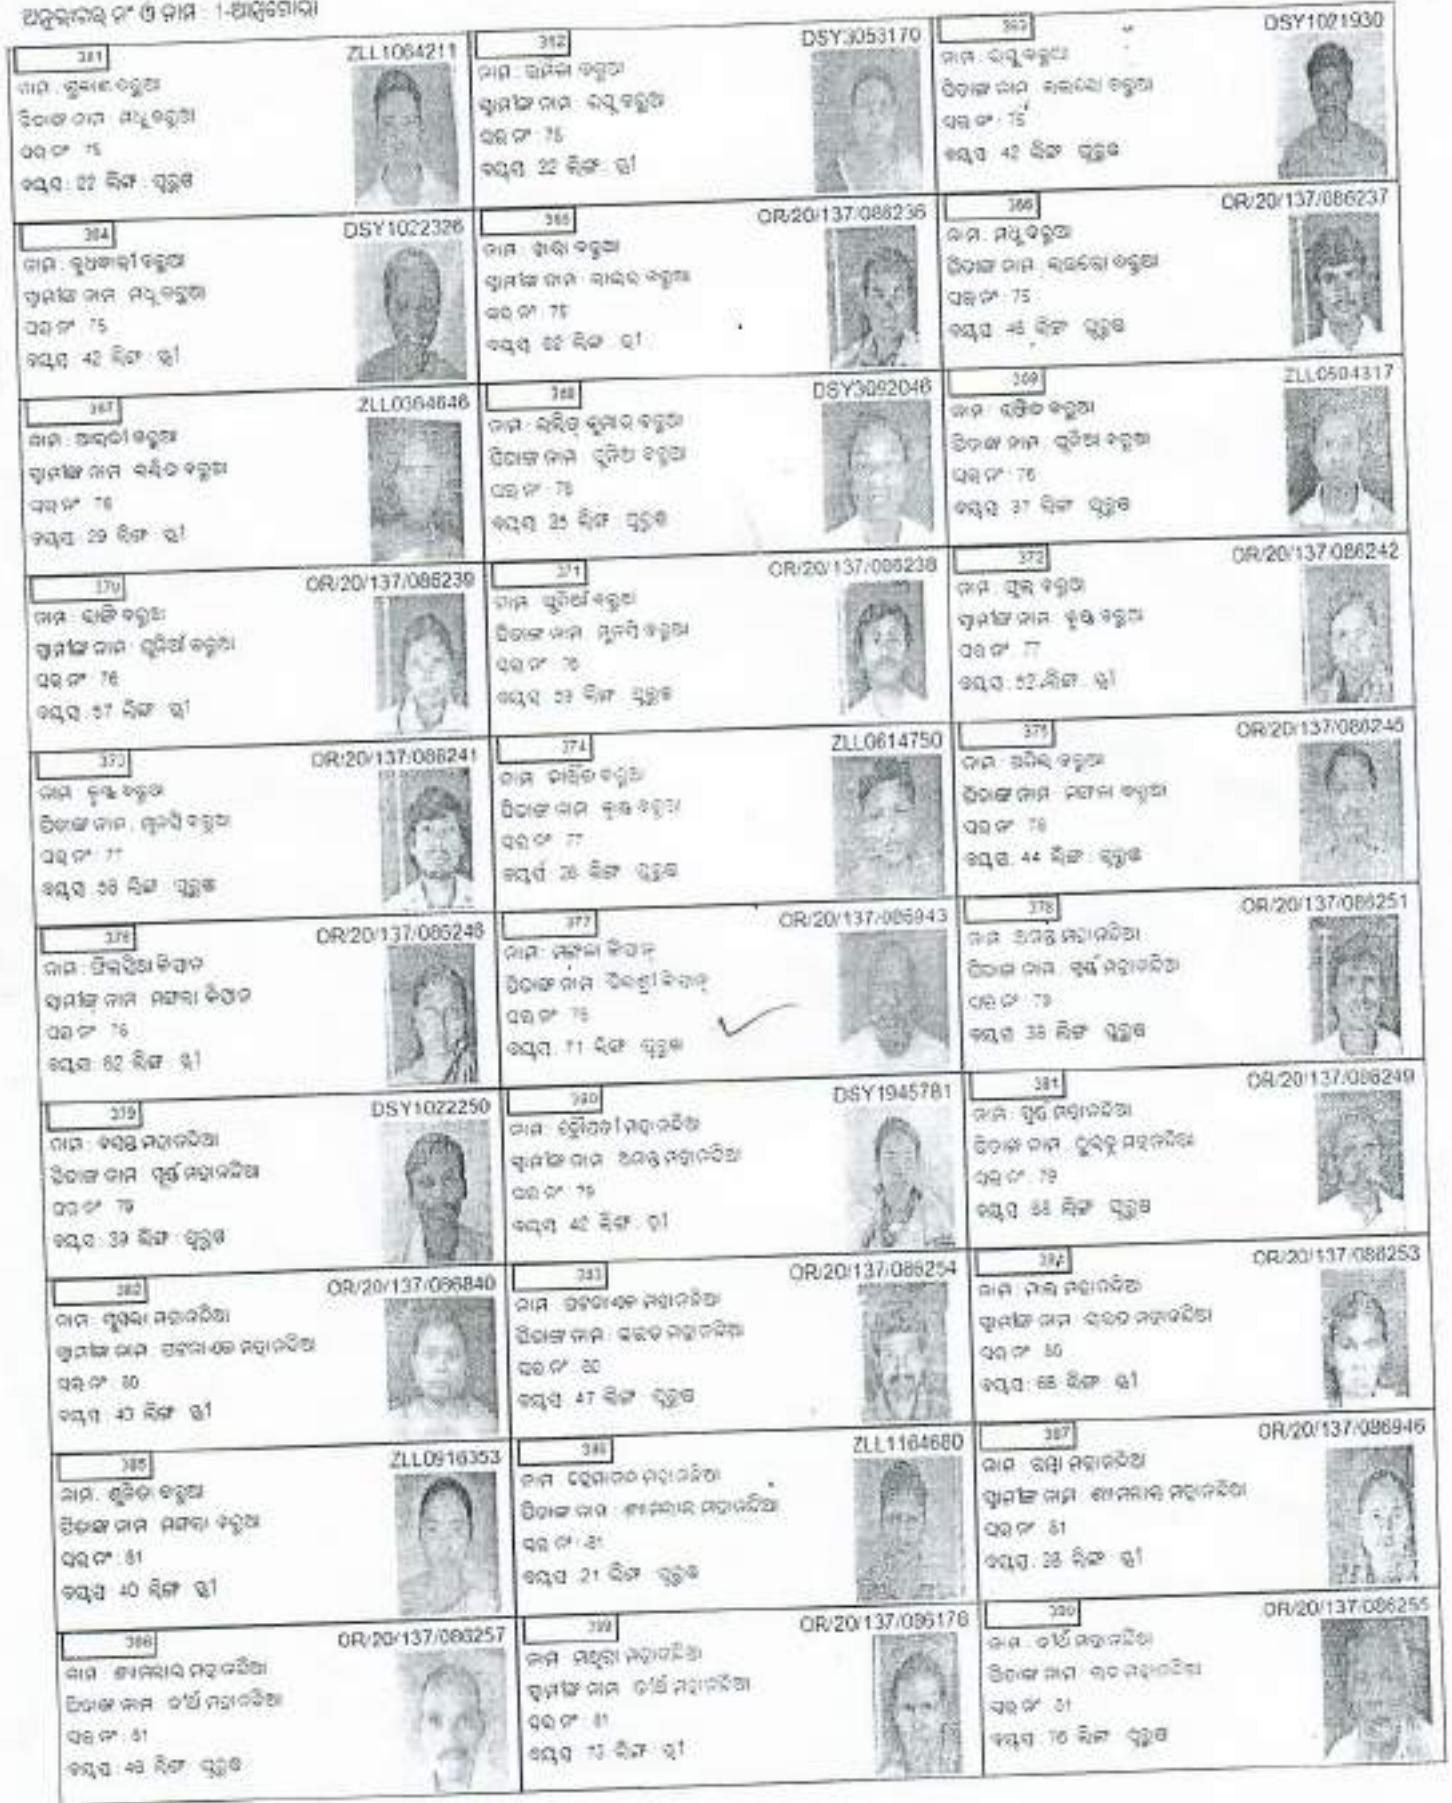 ଅନୁଭାଗର ନଂ ଓ ନାମ : 1-
361 ZLL1064211
ନାମ : ପ୍ରକାଶ ବରୁଆ
ପିତାଙ୍କ ନାମ : ମଧୁ ବରୁଆ
ଘର ନଂ : 75
ବୟସ : 22 ଲିଙ୍ଗ : ପୁରୁଷ
362 DSY3053170
ନାମ : ଉର୍ମିଳା ବରୁଆ
ସ୍ଵାମୀଙ୍କ ନାମ : ରଘୁ ବରୁଆ
ଘର ନଂ : 75
ବୟସ : 22 ଲିଙ୍ଗ : ସ୍ତ୍ରୀ
363 DSY1021930
ନାମ : ରଘୁ ବରୁଆ
ପିତାଙ୍କ ନାମ : ବରୁଆ
ଘର ନଂ : 75
ବୟସ : 42 ଲିଙ୍ଗ : ପୁରୁଷ
364 DSY1022326
ନାମ : ବରୁଆ
ସ୍ଵାମୀଙ୍କ ନାମ : ମଧୁ ବରୁଆ
ଘର ନଂ : 75
ବୟସ : 42 ଲିଙ୍ଗ : ସ୍ତ୍ରୀ
365 OR/20/137/086236
ନାମ : ବରୁଆ
ସ୍ଵାମୀଙ୍କ ନାମ : ବରୁଆ
ଘର ନଂ : 75
ବୟସ : ଲିଙ୍ଗ : ସ୍ତ୍ରୀ
366 OR/20/137/086237
ନାମ : ମଧୁ ବରୁଆ
ପିତାଙ୍କ ନାମ : ବରୁଆ
ଘର ନଂ : 75
ବୟସ : 46 ଲିଙ୍ଗ : ପୁରୁଷ
367 ZLL0364646
ନାମ : ଆରତୀ ବରୁଆ
ସ୍ଵାମୀଙ୍କ ନାମ : ଲଳିତ ବରୁଆ
ଘର ନଂ : 76
ବୟସ : 29 ଲିଙ୍ଗ : ସ୍ତ୍ରୀ
368 DSY3092046
ନାମ : ଲଳିତ କୁମାର ବରୁଆ
ପିତାଙ୍କ ନାମ : ସୁନିଆ ବରୁଆ
ଘର ନଂ : 76
ବୟସ : 35 ଲିଙ୍ଗ : ପୁରୁଷ
369 ZLL0504317
ନାମ : ରଞ୍ଜିତ ବରୁଆ
ପିତାଙ୍କ ନାମ : ସୁନିଆ ବରୁଆ
ଘର ନଂ : 76
ବୟସ : 37 ଲିଙ୍ଗ : ପୁରୁଷ
370 OR/20/137/086239
ନାମ : ବରୁଆ
ସ୍ଵାମୀଙ୍କ ନାମ : ସୁନିଆଁ ବରୁଆ
ଘର ନଂ : 76
ବୟସ : 57 ଲିଙ୍ଗ : ସ୍ତ୍ରୀ
371 OR/20/137/086238
ନାମ : ସୁନିଆଁ ବରୁଆ
ପିତାଙ୍କ ନାମ : ମୁନସି ବରୁଆ
ଘର ନଂ : 76
ବୟସ : 59 ଲିଙ୍ଗ : ପୁରୁଷ
372 OR/20/137/086242
ନାମ : ବରୁଆ
ସ୍ଵାମୀଙ୍କ ନାମ : କୃଷ୍ଣ ବରୁଆ
ଘର ନଂ : 77
ବୟସ : 52 ଲିଙ୍ଗ : ସ୍ତ୍ରୀ
373 OR/20/137/086241
ନାମ : କୃଷ୍ଣ ବରୁଆ
ପିତାଙ୍କ ନାମ : ମୁନସି ବରୁଆ
ଘର ନଂ : 77
ବୟସ : 56 ଲିଙ୍ଗ : ପୁରୁଷ
374 ZLL0614750
ନାମ : ବରୁଆ
ପିତାଙ୍କ ନାମ : କୃଷ୍ଣ ବରୁଆ
ଘର ନଂ : 77
ବୟସ : 26 ଲିଙ୍ଗ : ପୁରୁଷ
375 OR/20/137/086245
ନାମ : ଅନିଲ ବରୁଆ
ପିତାଙ୍କ ନାମ : ମଙ୍ଗଳା ବରୁଆ
ଘର ନଂ : 78
ବୟସ : 44 ଲିଙ୍ଗ : ପୁରୁଷ
376 OR/20/137/086246
ନାମ : କିସାନ
ସ୍ଵାମୀଙ୍କ ନାମ : ମଙ୍ଗଳା କିସାନ
ଘର ନଂ : 78
ବୟସ : 62 ଲିଙ୍ଗ : ସ୍ତ୍ରୀ
377 OR/20/137/086943
ନାମ : ମଙ୍ଗଳା କିସାନ୍
ପିତାଙ୍କ ନାମ : କିସାନ୍
ଘର ନଂ : 78
ବୟସ : 71 ଲିଙ୍ଗ : ପୁରୁଷ
378 OR/20/137/086251
ନାମ : ଅନନ୍ତ ମହାନନ୍ଦିଆ
ପିତାଙ୍କ ନାମ : ସୂର୍ଯ୍ୟ ମହାନନ୍ଦିଆ
ଘର ନଂ : 79
ବୟସ : 38 ଲିଙ୍ଗ : ପୁରୁଷ
379 DSY1022250
ନାମ : ବସନ୍ତ ମହାନନ୍ଦିଆ
ପିତାଙ୍କ ନାମ : ସୂର୍ଯ୍ୟ ମହାନନ୍ଦିଆ
ଘର ନଂ : 79
ବୟସ : 39 ଲିଙ୍ଗ : ପୁରୁଷ
380 DSY1945781
ନାମ : ଦ୍ରୌପଦୀ ମହାନନ୍ଦିଆ
ସ୍ଵାମୀଙ୍କ ନାମ : ଅନନ୍ତ ମହାନନ୍ଦିଆ
ଘର ନଂ : 79
ବୟସ : 42 ଲିଙ୍ଗ : ସ୍ତ୍ରୀ
381 OR/20/137/086249
ନାମ : ସୂର୍ଯ୍ୟ ମହାନନ୍ଦିଆ
ପିତାଙ୍କ ନାମ : ମହାନନ୍ଦିଆ
ଘର ନଂ : 79
ବୟସ : ଲିଙ୍ଗ : ପୁରୁଷ
382 OR/20/137/086840
ନାମ : ମହାନନ୍ଦିଆ
ସ୍ଵାମୀଙ୍କ ନାମ : ମହାନନ୍ଦିଆ
ଘର ନଂ : 80
ବୟସ : 43 ଲିଙ୍ଗ : ସ୍ତ୍ରୀ
383 OR/20/137/086254
ନାମ : ମହାନନ୍ଦିଆ
ପିତାଙ୍କ ନାମ : ମହାନନ୍ଦିଆ
ଘର ନଂ : 80
ବୟସ : 47 ଲିଙ୍ଗ : ପୁରୁଷ
384 OR/20/137/086253
ନାମ : ମହାନନ୍ଦିଆ
ସ୍ଵାମୀଙ୍କ ନାମ : ମହାନନ୍ଦିଆ
ଘର ନଂ : 80
ବୟସ : 68 ଲିଙ୍ଗ : ସ୍ତ୍ରୀ
385 ZLL0916353
ନାମ : ସୁନିତା ବରୁଆ
ପିତାଙ୍କ ନାମ : ମଙ୍ଗଳା ବରୁଆ
ଘର ନଂ : 81
ବୟସ : 40 ଲିଙ୍ଗ : ସ୍ତ୍ରୀ
386 ZLL1164680
ନାମ : ହେମାନନ୍ଦ ମହାନନ୍ଦିଆ
ପିତାଙ୍କ ନାମ : ଶ୍ୟାମଲାଲ ମହାନନ୍ଦିଆ
ଘର ନଂ : 81
ବୟସ : 21 ଲିଙ୍ଗ : ପୁରୁଷ
387 OR/20/137/086946
ନାମ : ମହାନନ୍ଦିଆ
ସ୍ଵାମୀଙ୍କ ନାମ : ଶ୍ୟାମଲାଲ ମହାନନ୍ଦିଆ
ଘର ନଂ : 81
ବୟସ : 38 ଲିଙ୍ଗ : ସ୍ତ୍ରୀ
388 OR/20/137/086257
ନାମ : ଶ୍ୟାମଲାଲ ମହାନନ୍ଦିଆ
ପିତାଙ୍କ ନାମ : ତୀର୍ଥ ମହାନନ୍ଦିଆ
ଘର ନଂ : 81
ବୟସ : 48 ଲିଙ୍ଗ : ପୁରୁଷ
389 OR/20/137/086176
ନାମ : ମଥୁରା ମହାନନ୍ଦିଆ
ସ୍ଵାମୀଙ୍କ ନାମ : ତୀର୍ଥ ମହାନନ୍ଦିଆ
ଘର ନଂ : 81
ବୟସ : 73 ଲିଙ୍ଗ : ସ୍ତ୍ରୀ
390 OR/20/137/086255
ନାମ : ତୀର୍ଥ ମହାନନ୍ଦିଆ
ପିତାଙ୍କ ନାମ : ମହାନନ୍ଦିଆ
ଘର ନଂ : 81
ବୟସ : 76 ଲିଙ୍ଗ : ପୁରୁଷ